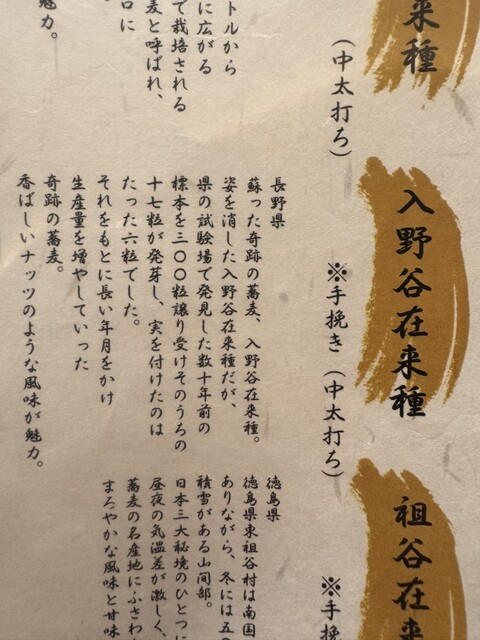 来種
（中太打ち）
トルから
に広がる
で栽培される
麦と呼ばれ、
ロに
魅力。
入野谷在来種
※手挽き（中太打ち）
長野県
蘇った奇跡の蕎麦、入野谷在来種。
姿を消した入野谷在来種だが、
県の試験場で発見した数十年前の
標本を三〇〇粒譲り受けそのうちの
十七粒が発芽し、実を付けたのは
たった六粒でした。
それをもとに長い年月をかけ
生産量を増やしていった
奇跡の蕎麦。
香ばしいナッツのような風味が魅力。
祖谷在来
※手挽
徳島県
徳島県東祖谷村は南国
ありながら、冬には五〇
積雪がある山間部。
日本三大秘境のひとつに
昼夜の気温差が激しく、
蕎麦の名産地にふさわ
まろやかな風味と甘味